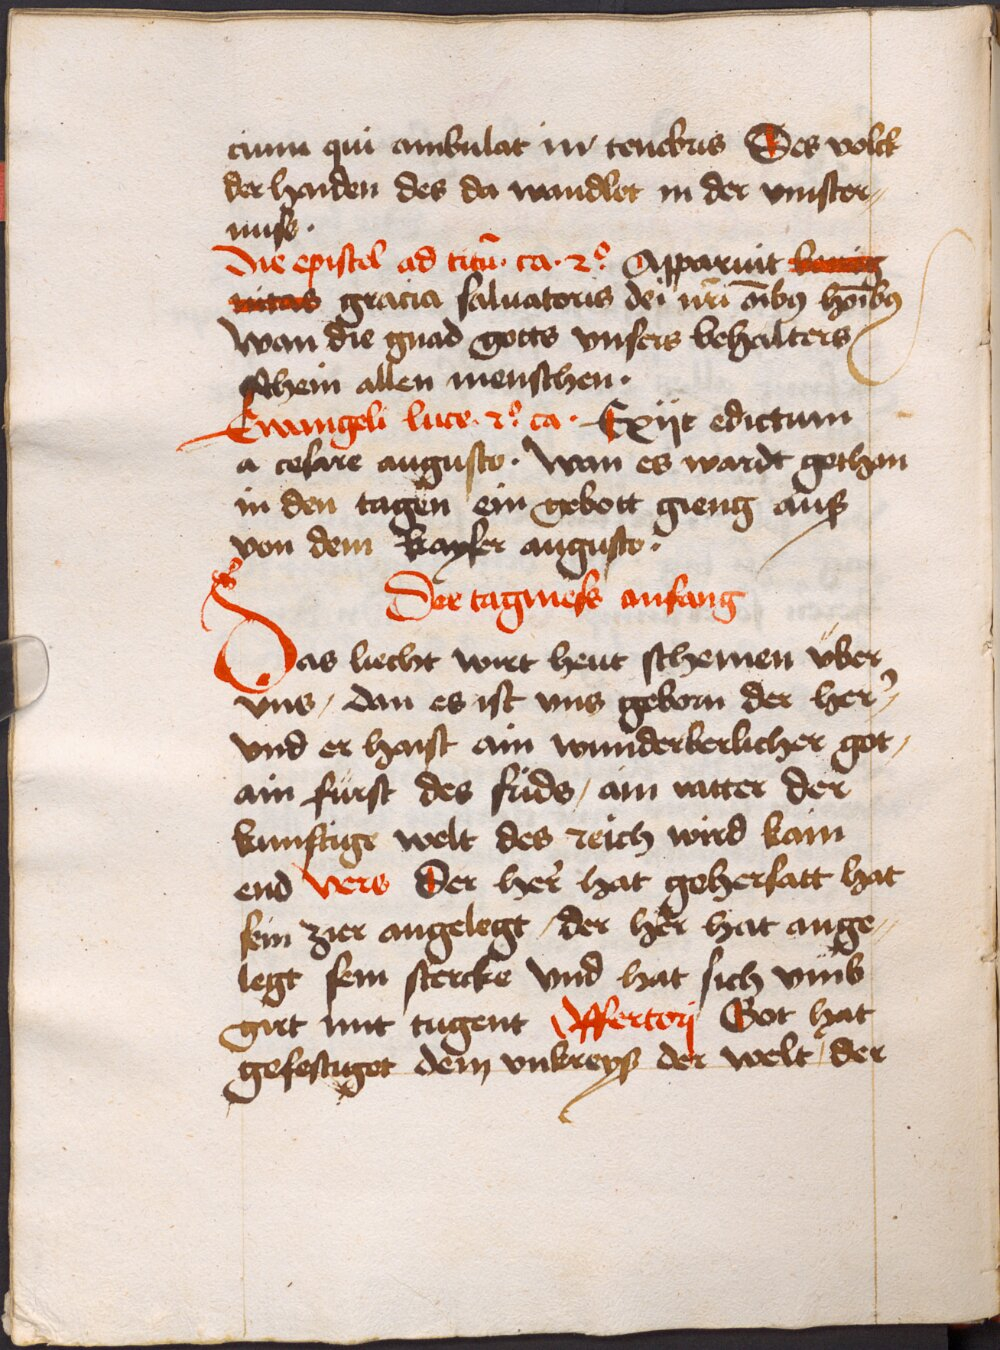 cium qui ambulat in tenebris Des volck
der haiden des da wandlet in der vinster-
nuss.
Die epistel ad titū. ca. 2º Apparuit benig
nitas gracia saluatoris dei nr̄i oībꝫ hoībꝫ
Wan die gnad gotts vnsers behalters
schein allen menschen.
Ewangeli luce. 2º ca. Exijt edictum
a cesare augusto. Wan es wardt gethan
in den tagen ein gebott gieng auß
von dem kayser augusto.
Der tagmess anfang
Das liecht wirt heut scheinen vber
vns / dan es ist vns geborn der her
vnd er haist ain wunderberlicher got /
ain fürst des frids / ain vatter der
kunftige welt des reich wird kain
end Vers Der her hat gehersatt hat
sein zier angelegt / der her hat ange-
legt sein stercke Vnd hat sich vmb
girt mit tugent Offertorj Got hat
gefestiget dem vnkreyß der welt / der